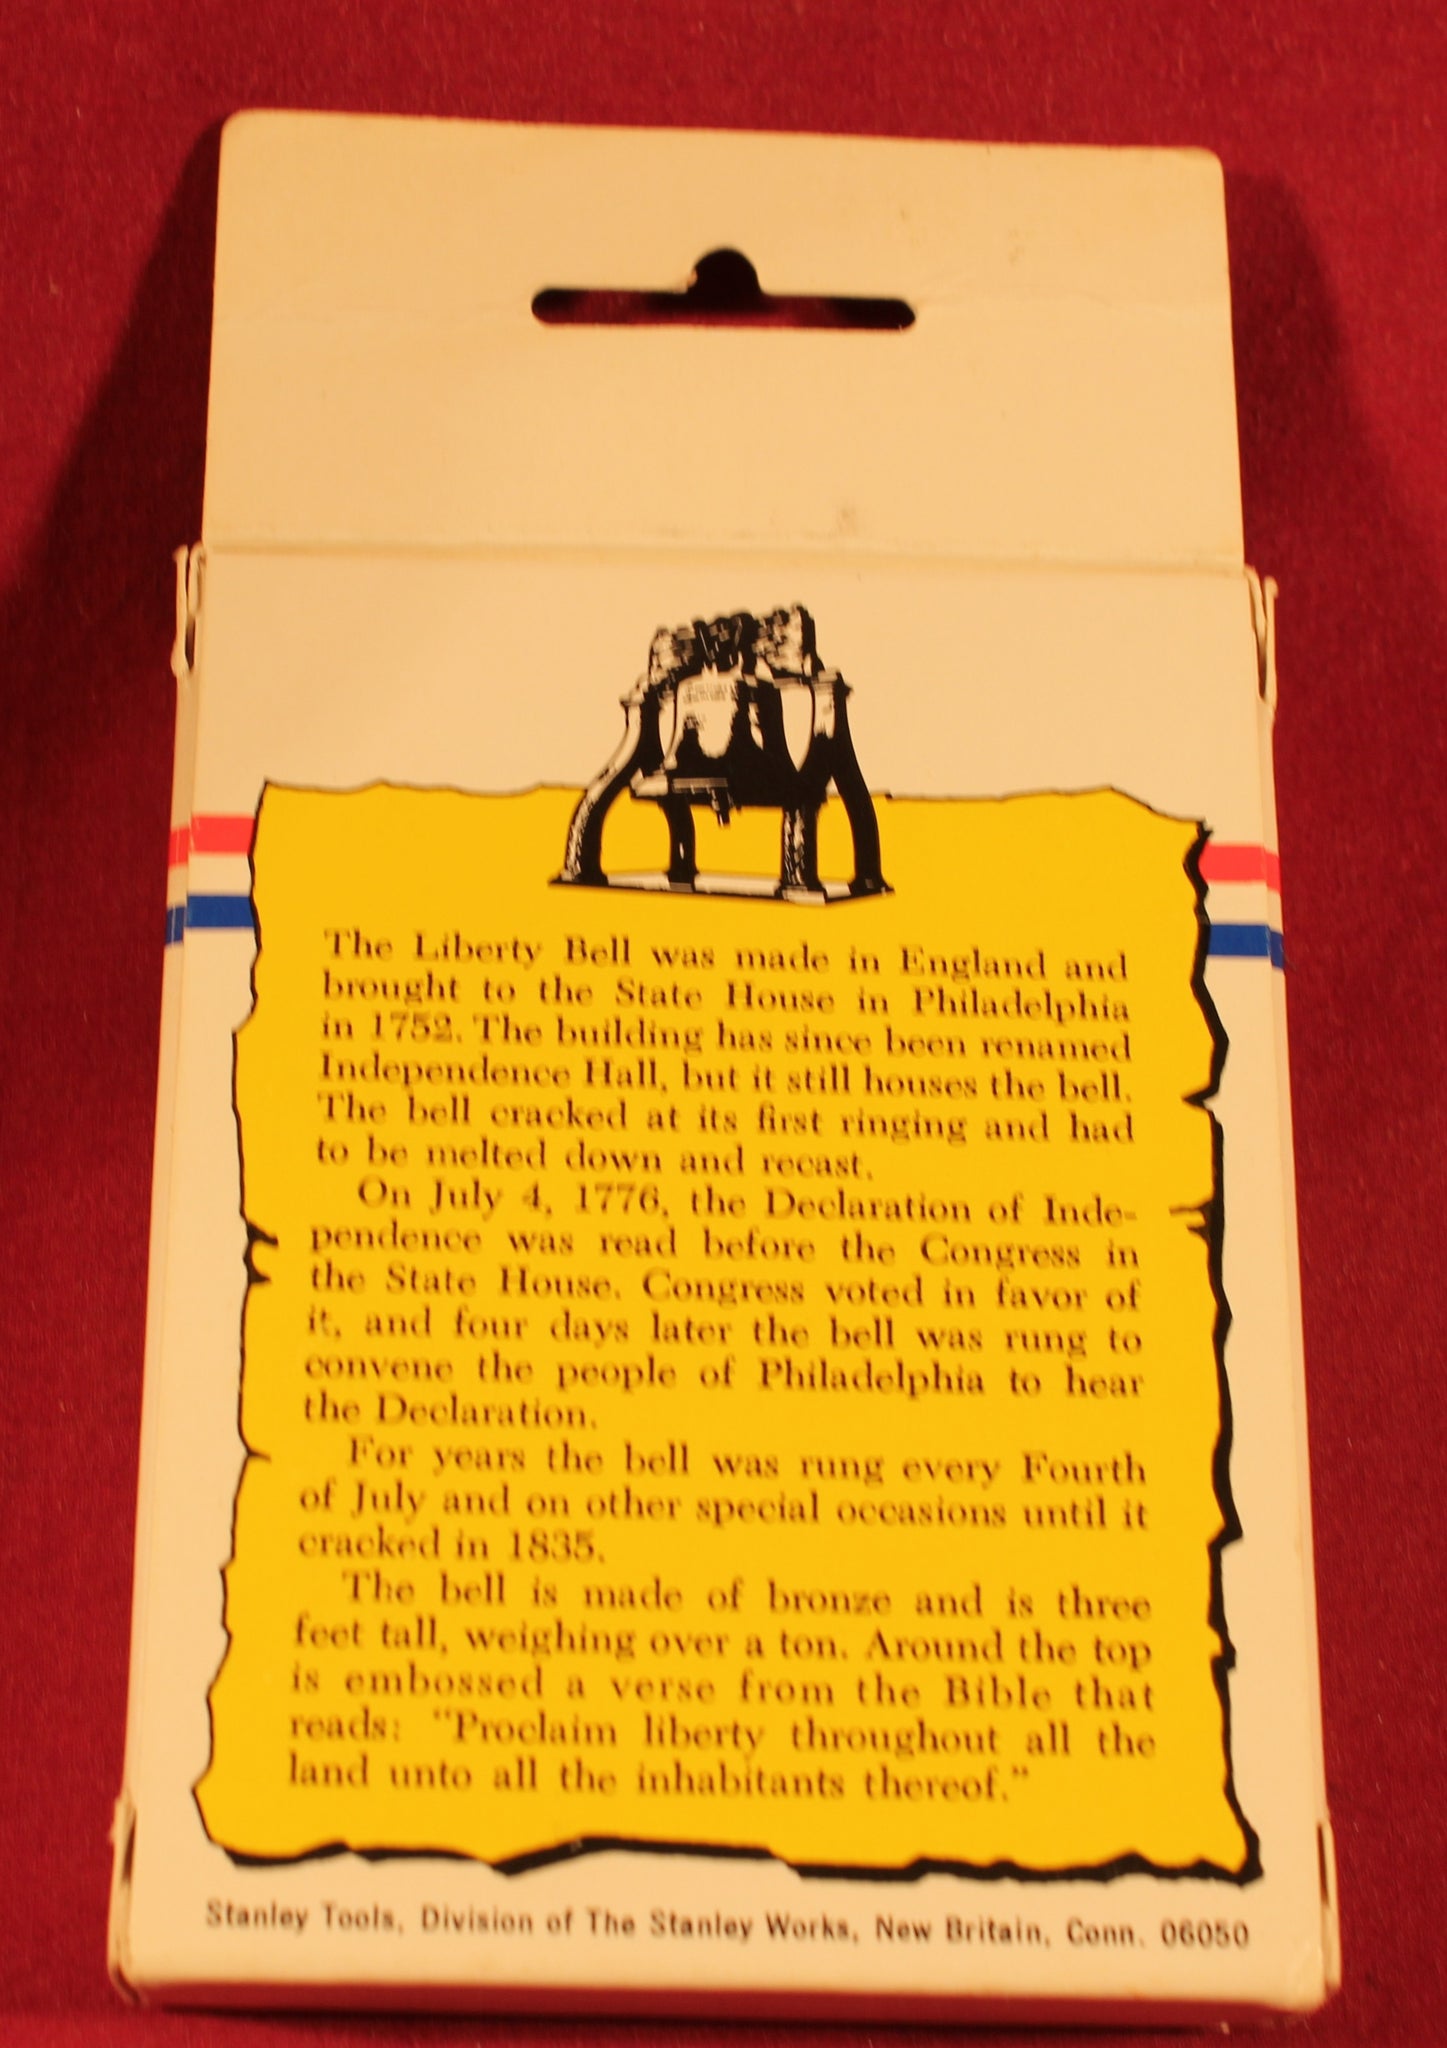 The Liberty Bell was made in England and
brought to the State House in Philadelphia
in 1752. The building has since been renamed
Independence Hall, but it still houses the bell.
The bell cracked at its first ringing and had
to be melted down and recast.
On July 4, 1776, the Declaration of Inde-
pendence was read before the Congress in
the State House. Congress voted in favor of
it, and four days later the bell was rung to
convene the people of Philadelphia to hear
the Declaration.
For years the bell was rung every Fourth
of July and on other special occasions until it
cracked in 1835.
The bell is made of bronze and is three
feet tall, weighing over a ton. Around the top
is embossed a verse from the Bible that
reads: "Proclaim liberty throughout all the
land unto all the inhabitants thereof."
Stanley Tools, Division of The Stanley Works, New Britain, Conn. 06050